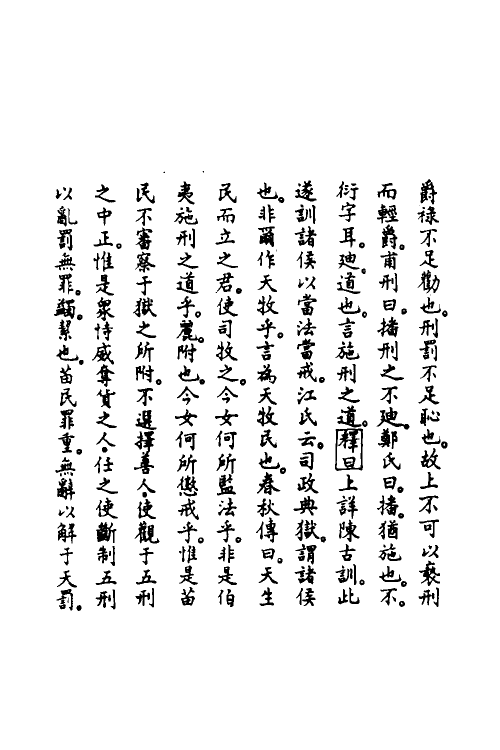 爵祿不足勸也。刑罰不足恥也。故上不可以褻刑
而輕爵。甫刑曰。播刑之不迪。鄭氏曰。播猶施也。不。
衍字耳。迪。道也。言施刑之道。釋曰上詳陳古訓。此
遂訓諸侯以當法當戒。江氏云。司政典獄。謂諸侯
也。非爾作天牧乎。言為天牧民也。春秋傳曰。天生
民而立之君。使司牧之。今女何所監法乎。非是伯
夷施刑之道乎。麗。附也。今女何所懲戒乎。惟是苗
民不審察于獄之所附。不選擇善人。使觀于五刑
之中正。惟是眾恃威奪貨之人。任之使斷制五刑
以亂罰無罪。蠲。絜也。苗民罪重。無辭以解于天罰。